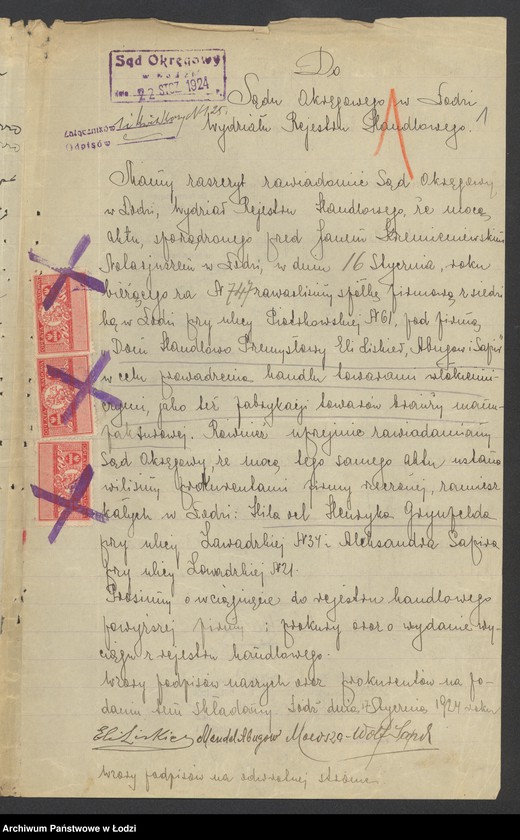 Sąd Okręgowy
w Łodzi
dnia 22 STCZ 1924
Do
Sądu Okręgowego w Łodzi
Wydziału Rejestru Handlowego.
Mamy zaszczyt zawiadomić Sąd Okręgowy
w Łodzi, Wydział Rejestru Handlowego, że mocą
aktu, sporządzonego przed Janem Krzemieniewskim
Notarjuszem w Łodzi, w dniu 16 Stycznia, roku
bieżącego za N 747 zawarliśmy spółkę firmową z siedzi
bą w Łodzi przy ulicy Piotrkowskiej N 61, pod firmą
"Dom Handlowo Przemysłowy Eli Liskier, Abugow i Sapir"
w celu prowadzenia handlu towarami włókienni-
czymi, jako też fabrykacji towarów branży manu-
fakturowej. Również uprzejmie zawiadamiamy
Sąd Okręgowy, że mocą tego samego aktu ustano
wiliśmy prokurentami firmy rzeczonej, zamiesz
kałych w Łodzi: Hila vel Henryka Grynfelda
przy ulicy Zawadzkiej N 34 i Aleksandra Sapira
przy ulicy Zawadzkiej N 21.
Prosimy o wciągnięcie do rejestru handlowego
powyższej firmy i prokury oraz o wydanie wy-
ciągu z rejestru handlowego.
Wzory podpisów naszych oraz prokurentów na po-
daniu tem składamy. Łódź dnia Stycznia 1924 roku
Eli Liskier Mendel Abugow Mowsza-Wolf Sapir
Wzory podpisów na odwrotnej stronie
Archiwum Państwowe w Łodzi